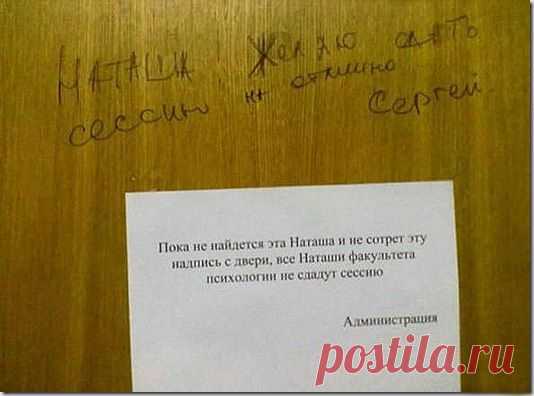 НАТАША ЖЕЛАЮ СДАТЬ
сессию на отлично
Сергей.
Пока не найдется эта Наташа и не сотрет эту
надпись с двери, все Наташи факультета
психологии не сдадут сессию
Администрация
postila.ru